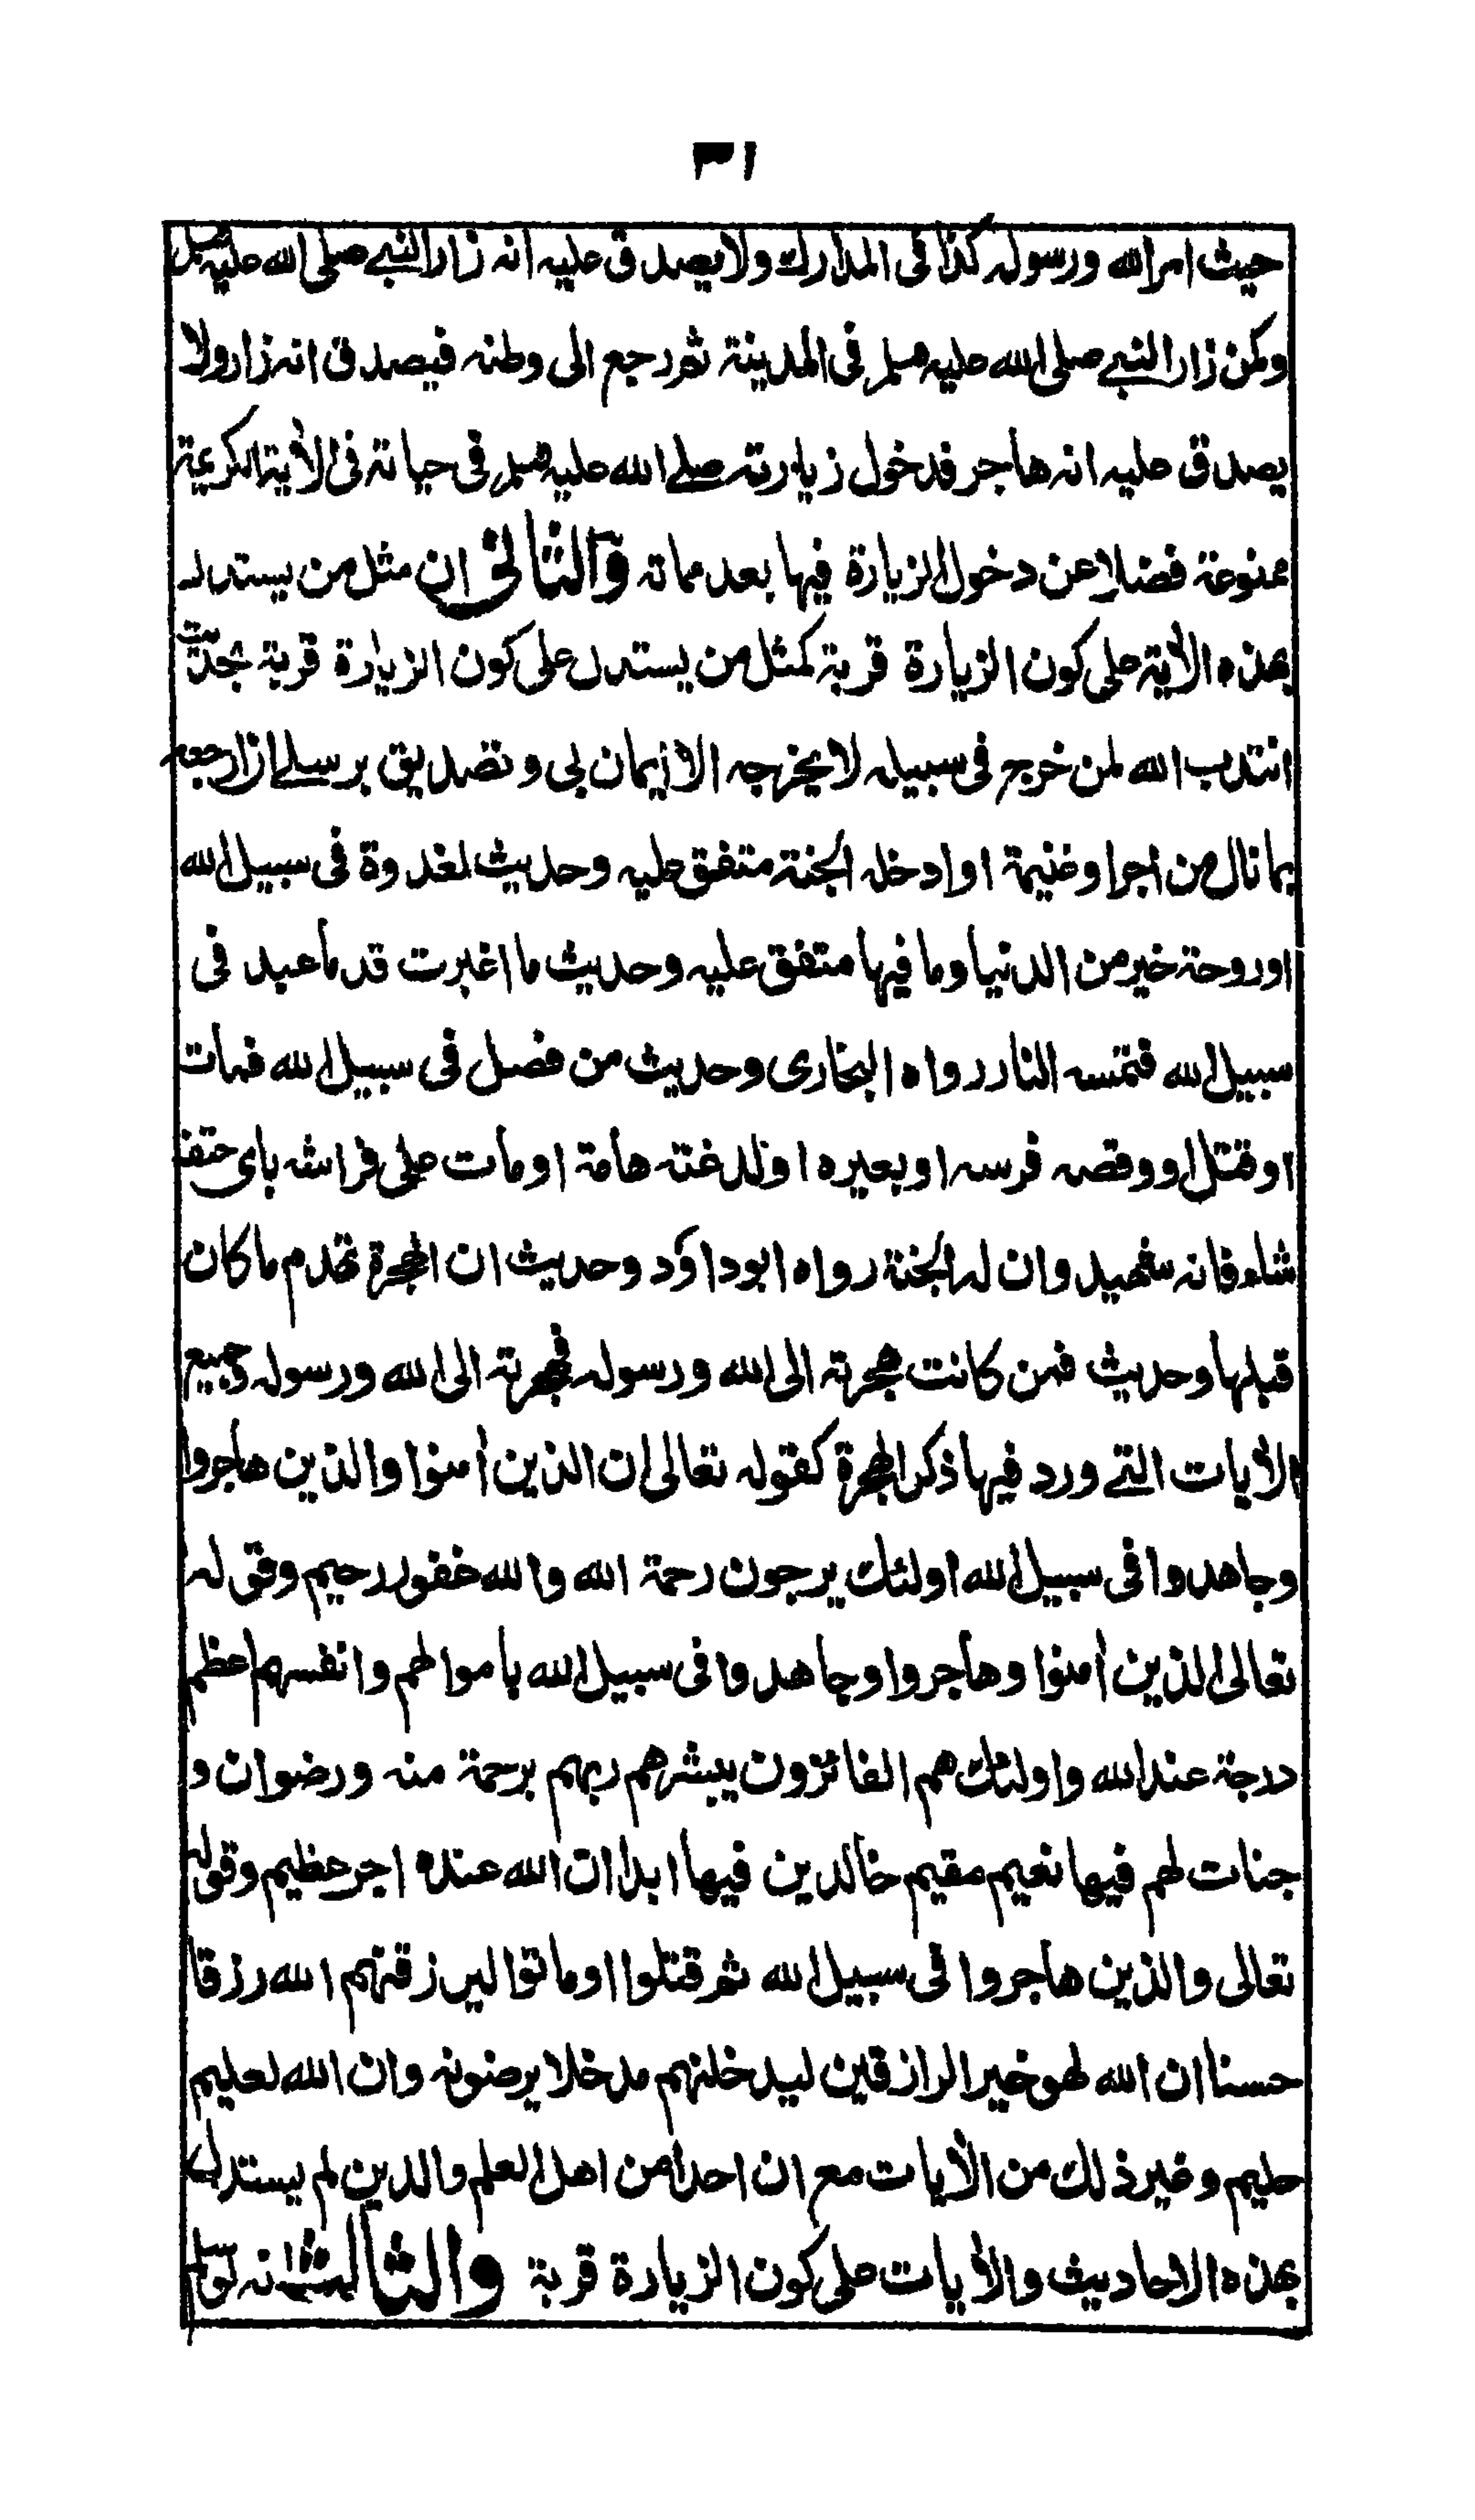 ٣١
حيث امر الله ورسوله كذا فى المدارك ولا يصدق عليه انه زار النبي صلى الله عليه وسلم
وكمن زار النبي صلى الله عليه وسلم فى المدينة ثم رجع الى وطنه فيصدق انه زار ولا
يصدق عليه انه هاجر فدخول زيارته صلے الله عليه وسلم فى حياته فى الأية الكريمة
ممنوعة فضلا عن دخول الزيارة فيها بعد مماته والثانى ان مثل من يستدل
بهذه الأية على كون الزيارة قربة كمثل من يستدل على كون الزيارة قربة بحديث
انتدب الله لمن خرج فى سبيله لا يخرجه الا ايمان بى وتصديق برسلے ان ارجعه
بما نال من اجر او غنيمة او ادخله الجنة متفق عليه وحديث لغدوة فى سبيل الله
او روحة خير من الدنيا وما فيها متفق عليه وحديث ما اغبرت قدما عبد فى
سبيل الله فتمسه النار رواه البخارى وحديث من فصل فى سبيل الله فمات
او قتل او وقصه فرسه او بعيره او لدغته هامة او مات على فراشه باى حتف
شاء فانه شهيد وان له الجنة رواه ابو داؤد وحديث ان الهجرة تهدم ما كان
قبلها وحديث فمن كانت هجرته الى الله ورسوله فهجرته الى الله ورسوله وجميع
الأيات التے ورد فيها ذكر الهجرة كقوله تعالى ان الذين أمنوا والذين هاجروا
وجاهدوا فى سبيل الله اولئك يرجون رحمة الله والله غفور رحيم وقوله
تعالى الذين أمنوا وهاجروا وجاهدوا فى سبيل الله باموالهم وانفسهم اعظم
درجة عند الله واولئك هم الفائزون يبشرهم ربهم برحمة منه ورضوان و
جنات لهم فيها نعيم مقيم خالدين فيها ابدا ان الله عنده اجر عظيم وقوله
تعالى والذين هاجروا فى سبيل الله ثم قتلوا او ماتوا ليرزقنهم الله رزقا
حسنا ان الله لهو خير الرازقين ليدخلنهم مدخلا يرضونه وان الله لعليم
حليم وغير ذلك من الأيات مع ان احدا من اهل العلم والدين لم يستدل
بهذه الاحاديث والأيات على كون الزيارة قربة والثالث انه لو